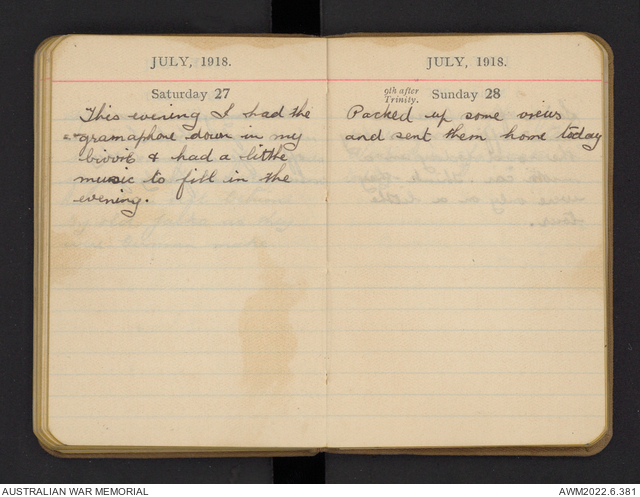 JULY, 1918.
Saturday 27
This evening I had the
gramaphone down in my
bivvie & had a little
music to fill in the
evening.
JULY, 1918.
9th after
Trinity.
Sunday 28
Packed up some views
and sent them home today
AUSTRALIAN WAR MEMORIAL
AWM2022.6.381